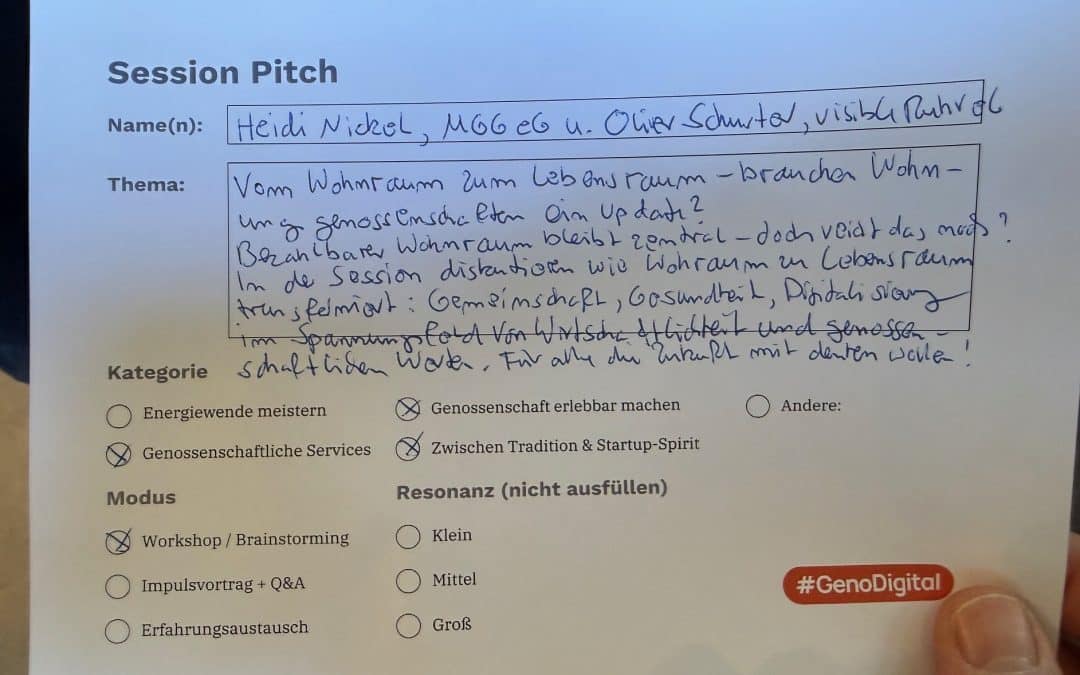 Session Pitch
Name(n): Heidi Nickel, MGG eG u. Oliver Schuster, visible Ruhr eG
Thema: Vom Wohnraum zum Lebensraum – brauchen Wohn-
ungsgenossenschaften ein Update?
Bezahlbarer Wohnraum bleibt zentral – doch reicht das noch?
In der Session diskutieren wie Wohnraum zu Lebensraum
transformiert: Gemeinschaft, Gesundheit, Digitalisierung
im Spannungsfeld von Wirtschaftlichkeit und genossen-
schaftlichen Werten. Für alle die Zukunft mit denken wollen!
Kategorie
Energiewende meistern
Genossenschaft erlebbar machen
Andere:
Genossenschaftliche Services
Zwischen Tradition & Startup-Spirit
Modus
Resonanz (nicht ausfüllen)
Workshop / Brainstorming
Klein
Impulsvortrag + Q&A
Mittel
Erfahrungsaustausch
Groß
#GenoDigital